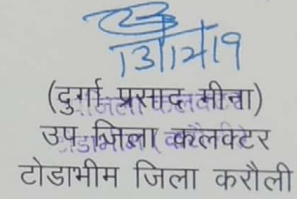 13/12/19
(दुर्गा प्रसाद मीना)
उप जिला कलक्टर
टोडाभीम जिला करौली